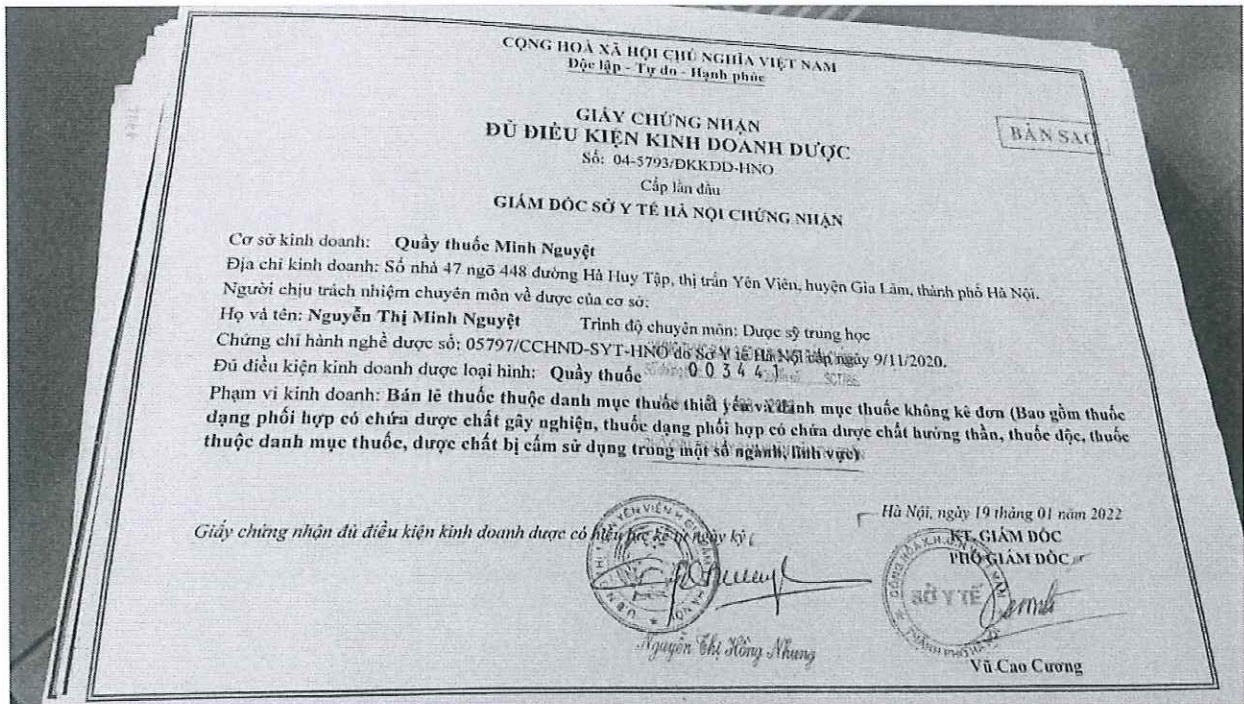 CỘNG HOÀ XÃ HỘI CHỦ NGHĨA VIỆT NAM
Độc lập - Tự do - Hạnh phúc
GIẤY CHỨNG NHẬN
ĐỦ ĐIỀU KIỆN KINH DOANH DƯỢC
BẢN SAO
Số: 04-5793/ĐKKDD-HNO
Cấp lần đầu
GIÁM ĐỐC SỞ Y TẾ HÀ NỘI CHỨNG NHẬN
Cơ sở kinh doanh: Quầy thuốc Minh Nguyệt
Địa chỉ kinh doanh: Số nhà 47 ngõ 448 đường Hà Huy Tập, thị trấn Yên Viên, huyện Gia Lâm, thành phố Hà Nội.
Người chịu trách nhiệm chuyên môn về dược của cơ sở:
Họ và tên: Nguyễn Thị Minh Nguyệt Trình độ chuyên môn: Dược sỹ trung học
Chứng chỉ hành nghề dược số: 05797/CCHND-SYT-HNO do Sở Y tế Hà Nội cấp ngày 9/11/2020.
Đủ điều kiện kinh doanh dược loại hình: Quầy thuốc 003441 SCT/BS
Phạm vi kinh doanh: Bán lẻ thuốc thuộc danh mục thuốc thiết yếu và danh mục thuốc không kê đơn (Bao gồm thuốc
dạng phối hợp có chứa dược chất gây nghiện, thuốc dạng phối hợp có chứa dược chất hướng thần, thuốc độc, thuốc
thuộc danh mục thuốc, dược chất bị cấm sử dụng trong một số ngành, lĩnh vực)
Hà Nội, ngày 19 tháng 01 năm 2022
Giấy chứng nhận đủ điều kiện kinh doanh dược có hiệu lực kể từ ngày ký
KT. GIÁM ĐỐC
PHÓ GIÁM ĐỐC
SỞ Y TẾ
Nguyễn Thị Hồng Nhung
Vũ Cao Cương